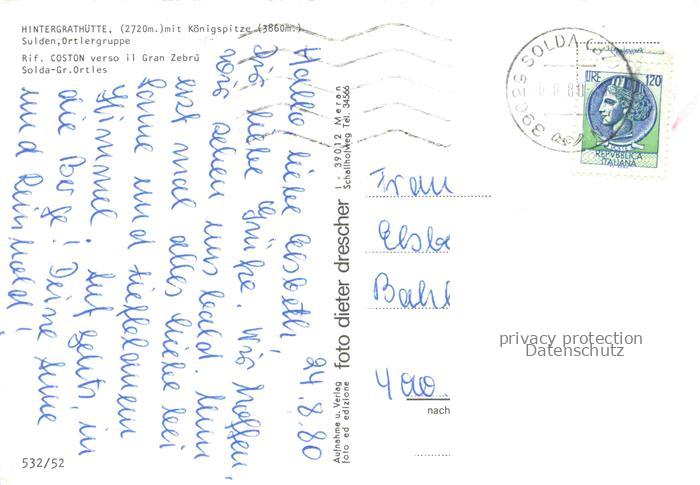 HINTERGRATHÜTTE, (2720m.)mit Königspitze (3860m.)
Sulden,Ortlergruppe
Rif. COSTON verso il Gran Zebrù
Solda-Gr.Ortles
24.8.80
Hallo, liebe Elsbeth,
Dir liebe Grüße. Wir hoffen,
wir sehen uns bald. Nun
erst mal alles Liebe bei
Sonne und tiefblauem
Himmel. Auf geht's, in
die Berge! Deine Anne
und Reinhold!
532/52
Aufnahme u. Verlag
foto ed edizione
foto dieter drescher
I - 39012 Meran
Schallhofweg Tel. 34566
39029 SOLDA
LIRE 120
REPVBBLICA
ITALIANA
Frau
Elsbe
Bahl
400
nach
privacy protection
Datenschutz